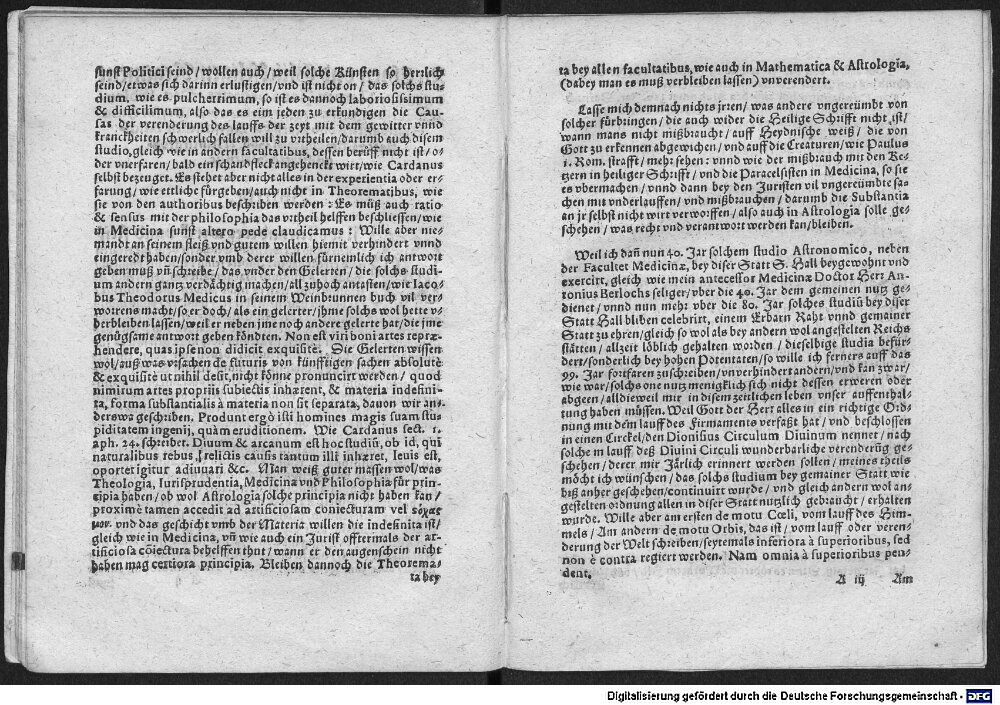 sunst Politici seind / wollen auch / weil solche Künsten so herrlich
seind / etwas sich darinn erlustigen / vnd ist nicht on / das solchs stu-
dium, wie es pulcherrimum, so ist es dannoch laboriosissimum
& difficilimum, also das es eim jeden zu erkundigen die Cau-
sas der verenderung des lauffs der zeyt mit dem gewitter vnnd
kranckheiten schwerlich fallen will zu vrtheilen / darumb auch disem
studio, gleich wie in andern facultatibus, dessen berüff nicht ist / o-
der vnerfaren / bald ein schandfleck angehenckt wirt / wie Cardanus
selbst bezeuget. Es stehet aber nicht alles in der experientia oder er-
farung / wie ettliche fürgeben / auch nicht in Theorematibus, wie
sie von den authoribus beschriben werden : Es müß auch ratio
& sensus mit der philosophia das vrtheil helffen beschliessen / wie
in Medicina sunst altero pede claudicamus : Wille aber nie-
mandt an seinem fleiß vnd gutem willen hiemit verhindert vnnd
eingeredt haben / sonder vmb derer willen fürnemlich ich antwort
geben muß vñ schreibe / das vnder den Gelerten / die solchs studi-
um andern gantz verdächtig machen / all zuhoch antasten / wie Iaco-
bus Theodorus Medicus in seinem Weinbrunnen buch vil ver-
worrens macht / so er doch / als ein gelerter / jhme solchs wol hette v-
berbleiben lassen / weil er neben jme noch andere gelerte hat / die jme
genügsame antwort geben köndten. Non est viri boni artes repræ-
hendere, quas ipse non didicit exquisitè. Die Gelerten wissen
wol / auß was vrsachen de futuris von künfftigen sachen absolutè
& exquisitè ut nihil desit, nicht könne pronuncirt werden / quod
nimirum artes propriis subiectis inhærent, & materia indefini-
ta, forma substantialis à materia non sit separata, dauon wir an-
derswa geschriben. Produnt ergò isti homines magis suam stu-
piditatem ingenij, quàm eruditionem. Wie Cardanus sect. 1.
aph. 24. schreibet. Diuum & arcanum est hoc studiũ, ob id, qui
naturalibus rebus, relictis causis tantum illi inhæret, leuis est,
oportet igitur adiuuari &c. Man weiß guter massen wol / was
Theologia, Iurisprudentia, Medicina vnd Philosophia für prin-
cipia haben / ob wol Astrologia solche principia nicht haben kan /
proximè tamen accedit ad artificiosam coniecturam vel
vnd das geschicht vmb der Materia willen die indefinita ist /
gleich wie in Medicina, vñ wie auch ein Jurist offtermals der ar-
tificiosa cõiectura behelffen thut / wann er den augenschein nicht
haben mag certiora principia. Bleiben dannoch die Theorema-
ta bey
ta bey allen facultatibus, wie auch in Mathematica & Astrologia,
(dabey man es muß verbleiben lassen) vnverendert.
Lasse mich demnach nichts jrren / was andere vngereümbt von
solcher fürbringen / die auch wider die Heilige Schrifft nicht ist /
wann mans nicht mißbraucht / auff Heydnische weiß / die von
Gott zu erkennen abgewichen / vnd auff die Creaturen / wie Paulus
1. Rom. strafft / mehr sehen : vnnd wie der mißbrauch mit den Ke-
tzern in heiliger Schrifft / vnd die Paracelsisten in Medicina, so sie
es vbermachen / vnnd dann bey den Juristen vil vngereümbte sa-
chen mit vnderlauffen / vnd mißbrauchen / darumb die Substantia
an jr selbst nicht wirt verworffen / also auch in Astrologia solle ge-
schehen / was recht vnd verantwort werden kan / bleiben.
Weil ich dañ nun 40. Jar solchem studio Astronomico, neben
der Facultet Medicinæ, bey diser Statt S. Hall beygewohnt vnd
exercirt, gleich wie mein antecessor Medicinæ Doctor Herr An-
tonius Berlochs seliger / vber die 40. Jar dem gemeinen nutz ge-
dienet / vnnd nun mehr vber die 80. Jar solches studiũ bey diser
Statt Hall bliben celebrirt, einem Erbarn Raht vnnd gemainer
Statt zu ehren / gleich so wol als bey andern wol angestelten Reichs
stätten / allzeit löblich gehalten worden / dieselbige studia befür-
dert / sonderlich bey hohen Potentaten / so wille ich ferners auff das
99. Jar fortfaren zuschreiben / vnverhindert andern / vnd kan zwar /
wie war / solchs one nutz menigklich sich nicht dessen erweren oder
abgeen / alldieweil mir in disem zeitlichen leben vnser auffenthal-
tung haben müssen. Weil Gott der Herr alles in ein richtige Ord-
nung mit dem lauff des Firmaments verfaßt hat / vnd beschlossen
in einen Circkel, den Dionisius Circulum Diuinum nennet / nach
solchem lauff deß Diuini Circuli wunderbarliche verenderũg ge-
schehen / derer mir Järlich erinnert werden sollen / meines theils
möcht ich wünschen / das solchs studium bey gemainer Statt wie
biß anher geschehen / continuirt wurde / vnd gleich andern wol an-
gestelten ordnung allen in diser Statt nutzlich gebraucht / erhalten
wurde. Wille aber am ersten de motu Cœli, vom lauff des Him-
mels / Am andern de motu Orbis, das ist / vom lauff oder veren-
derung der Welt schreiben / seytemals inferiora à superioribus, sed
non è contra regiert werden. Nam omnia à superioribus pen-
dent.
A iij Am
Digitalisierung gefördert durch die Deutsche Forschungsgemeinschaft - DFG